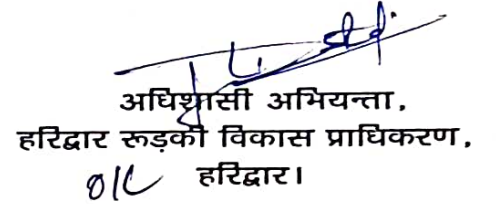 अधिशासी अभियन्ता,
हरिद्वार रूड़की विकास प्राधिकरण,
हरिद्वार।